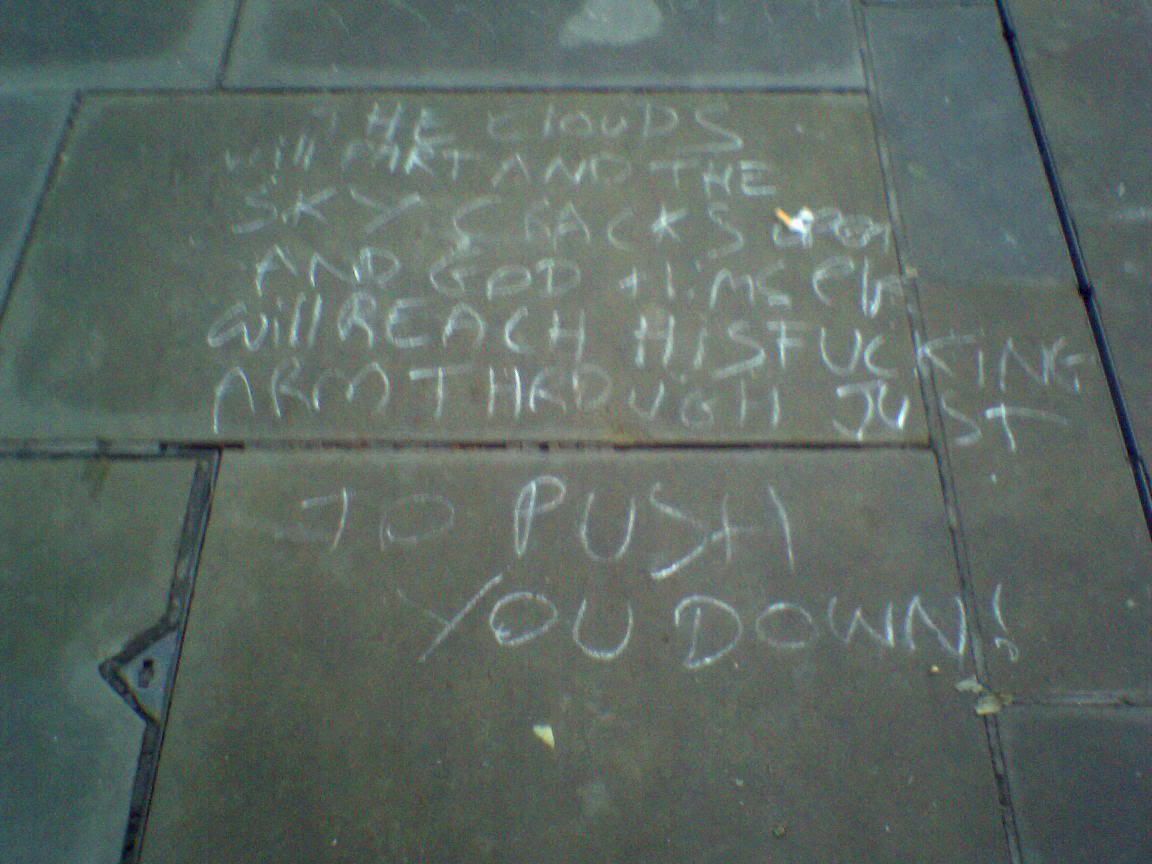 THE CLOUDS
Will PART AND THE
SKY CRACKS OPEN
AND GOD HiMSELF
Will REACH HiS FUCKING
ARM THROUGH JUST
TO PUSH
YOU DOWN!